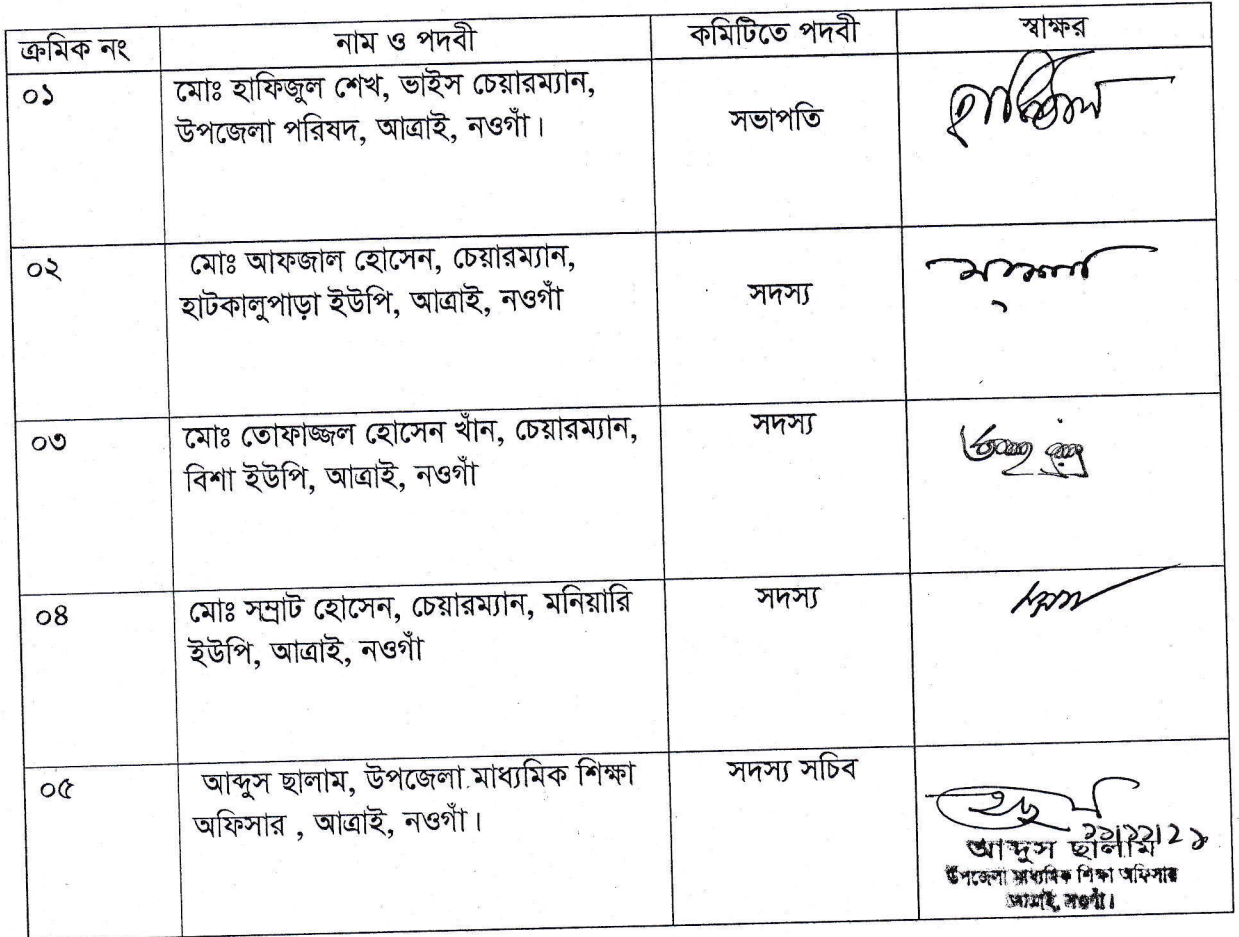 ক্রমিক নং নাম ও পদবী কমিটিতে পদবী স্বাক্ষর
০১ মোঃ হাফিজুল শেখ, ভাইস চেয়ারম্যান,
উপজেলা পরিষদ, আত্রাই, নওগাঁ।
সভাপতি
০২ মোঃ আফজাল হোসেন, চেয়ারম্যান,
হাটকালুপাড়া ইউপি, আত্রাই, নওগাঁ
সদস্য
০৩ মোঃ তোফাজ্জল হোসেন খাঁন, চেয়ারম্যান,
বিশা ইউপি, আত্রাই, নওগাঁ
সদস্য
০৪ মোঃ সম্রাট হোসেন, চেয়ারম্যান, মনিয়ারি
ইউপি, আত্রাই, নওগাঁ
সদস্য
০৫ আব্দুস ছালাম, উপজেলা মাধ্যমিক শিক্ষা
অফিসার , আত্রাই, নওগাঁ।
সদস্য সচিব
আব্দুস ছালাম
উপজেলা মাধ্যমিক শিক্ষা অফিসার
আত্রাই, নওগাঁ।